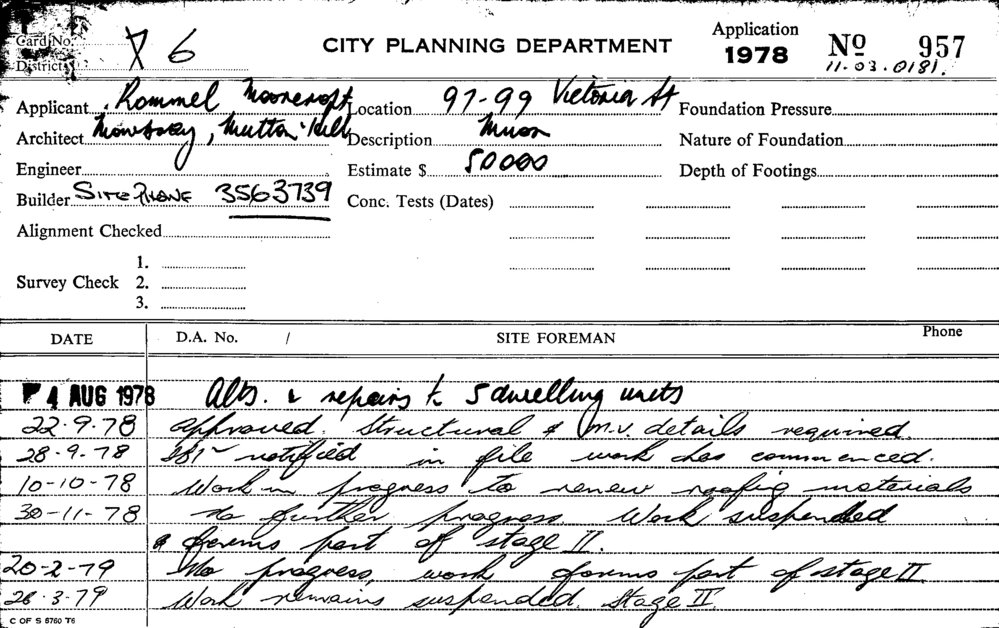 Card No. 76 CITY PLANNING DEPARTMENT Application 1978 No 957
District 11.03.0181.
Applicant Rommel Moorcroft Location 97-99 Victoria St Foundation Pressure
Architect Mutton Description Nature of Foundation
Engineer Estimate $ 50000 Depth of Footings
Builder SITE PHONE 3563739 Conc. Tests (Dates)
Alignment Checked
1.
Survey Check 2.
3.
DATE D.A. No. / SITE FOREMAN Phone
4 AUG 1978 Alts. & repairs to 5 dwelling units
22.9.78 Approved. Structural & M.V. details required.
28.9.78 notified in file work has commenced.
10-10-78 Work in progress to renew roofig materials
30-11-78 No further progress. Work suspended
& forms part of stage II.
20-2-79 No progress, work forms part of stage II
28.3.79 Work remains suspended. Stage II
C OF S 5760 T6